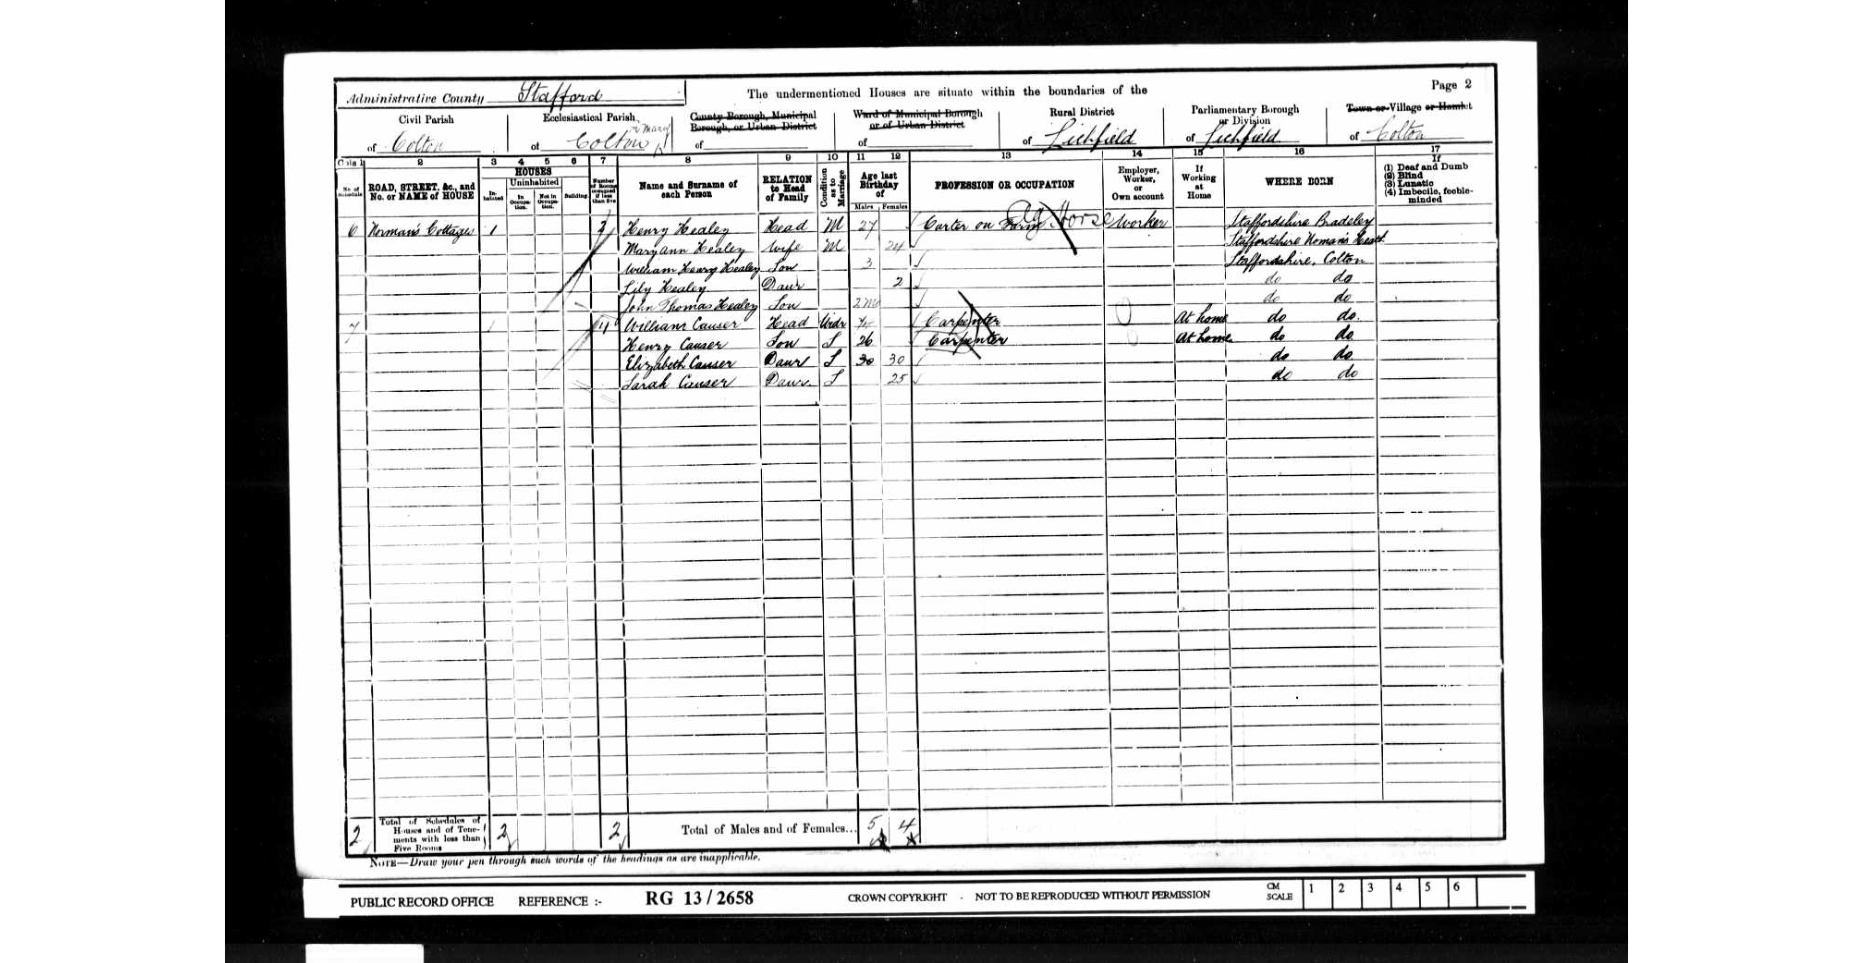 Administrative County Stafford
The undermentioned Houses are situate within the boundaries of the
Page 2
Civil Parish
of Colton
Ecclesiastical Parish,
of Colton St Mary
County Borough, Municipal
Borough, or Urban District
of
Ward of Municipal Borough
or of Urban District
of
Rural District
of Lichfield
Parliamentary Borough
or Division
of Lichfield
Town or Village or Hamlet
of Colton
Cols 1 2 3 4 5 6 7 8 9 10 11 12 13 14 15 16 17
No. of Schedule
ROAD, STREET, &c., and
No. or NAME of HOUSE
HOUSES
In-habited
Uninhabited
In Occupa-tion.
Not in Occupa-tion.
Building
Number of Rooms occupied if less than five
Name and Surname of
each Person
RELATION
to Head
of Family
Condition as to Marriage
Age last
Birthday
of
Males Females
PROFESSION OR OCCUPATION
Employer,
Worker,
or
Own account
If
Working
at
Home
WHERE BORN
If
(1) Deaf and Dumb
(2) Blind
(3) Lunatic
(4) Imbecile, feeble-
minded
6 Norman's Cottages 1 Henry Healey Head M 27 Carter on Farm Ag Horse Worker Staffordshire Bradeley
Mary Ann Healey Wife M 24 Staffordshire
William Henry Healey Son 3 Staffordshire, Colton
Lily Healey Daur 2 do do
John Thomas Healey Son 2 mo do do
7 1 4 William Causer Head Widr Carpenter At home do do.
Henry Causer Son S 26 Carpenter At home do do
Elizabeth Causer Daur S 30 30 do do
Sarah Causer Daur. S 25 do do
2
Total of Schedules of
Houses and of Tene-
ments with less than
Five Rooms
2 2
Total of Males and of Females... 5 4
NOTE—Draw your pen through such words of the headings as are inapplicable.
PUBLIC RECORD OFFICE REFERENCE :- RG 13 / 2658 CROWN COPYRIGHT - NOT TO BE REPRODUCED WITHOUT PERMISSION
CM
SCALE
1 2 3 4 5 6